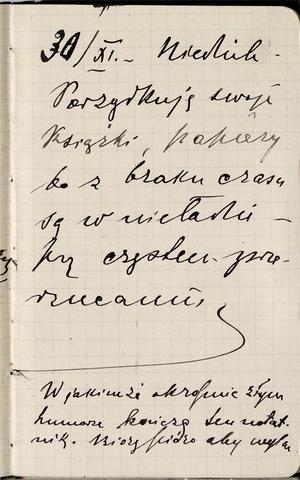 30/XI. - Niedziel -
Porządkuję swoje
książki, papiery
bo z braku czasu
są w nieładzie -
przy czystem
W jakimże okropnie złym
humorze kończę ten notat
nik. Biorę pióro aby